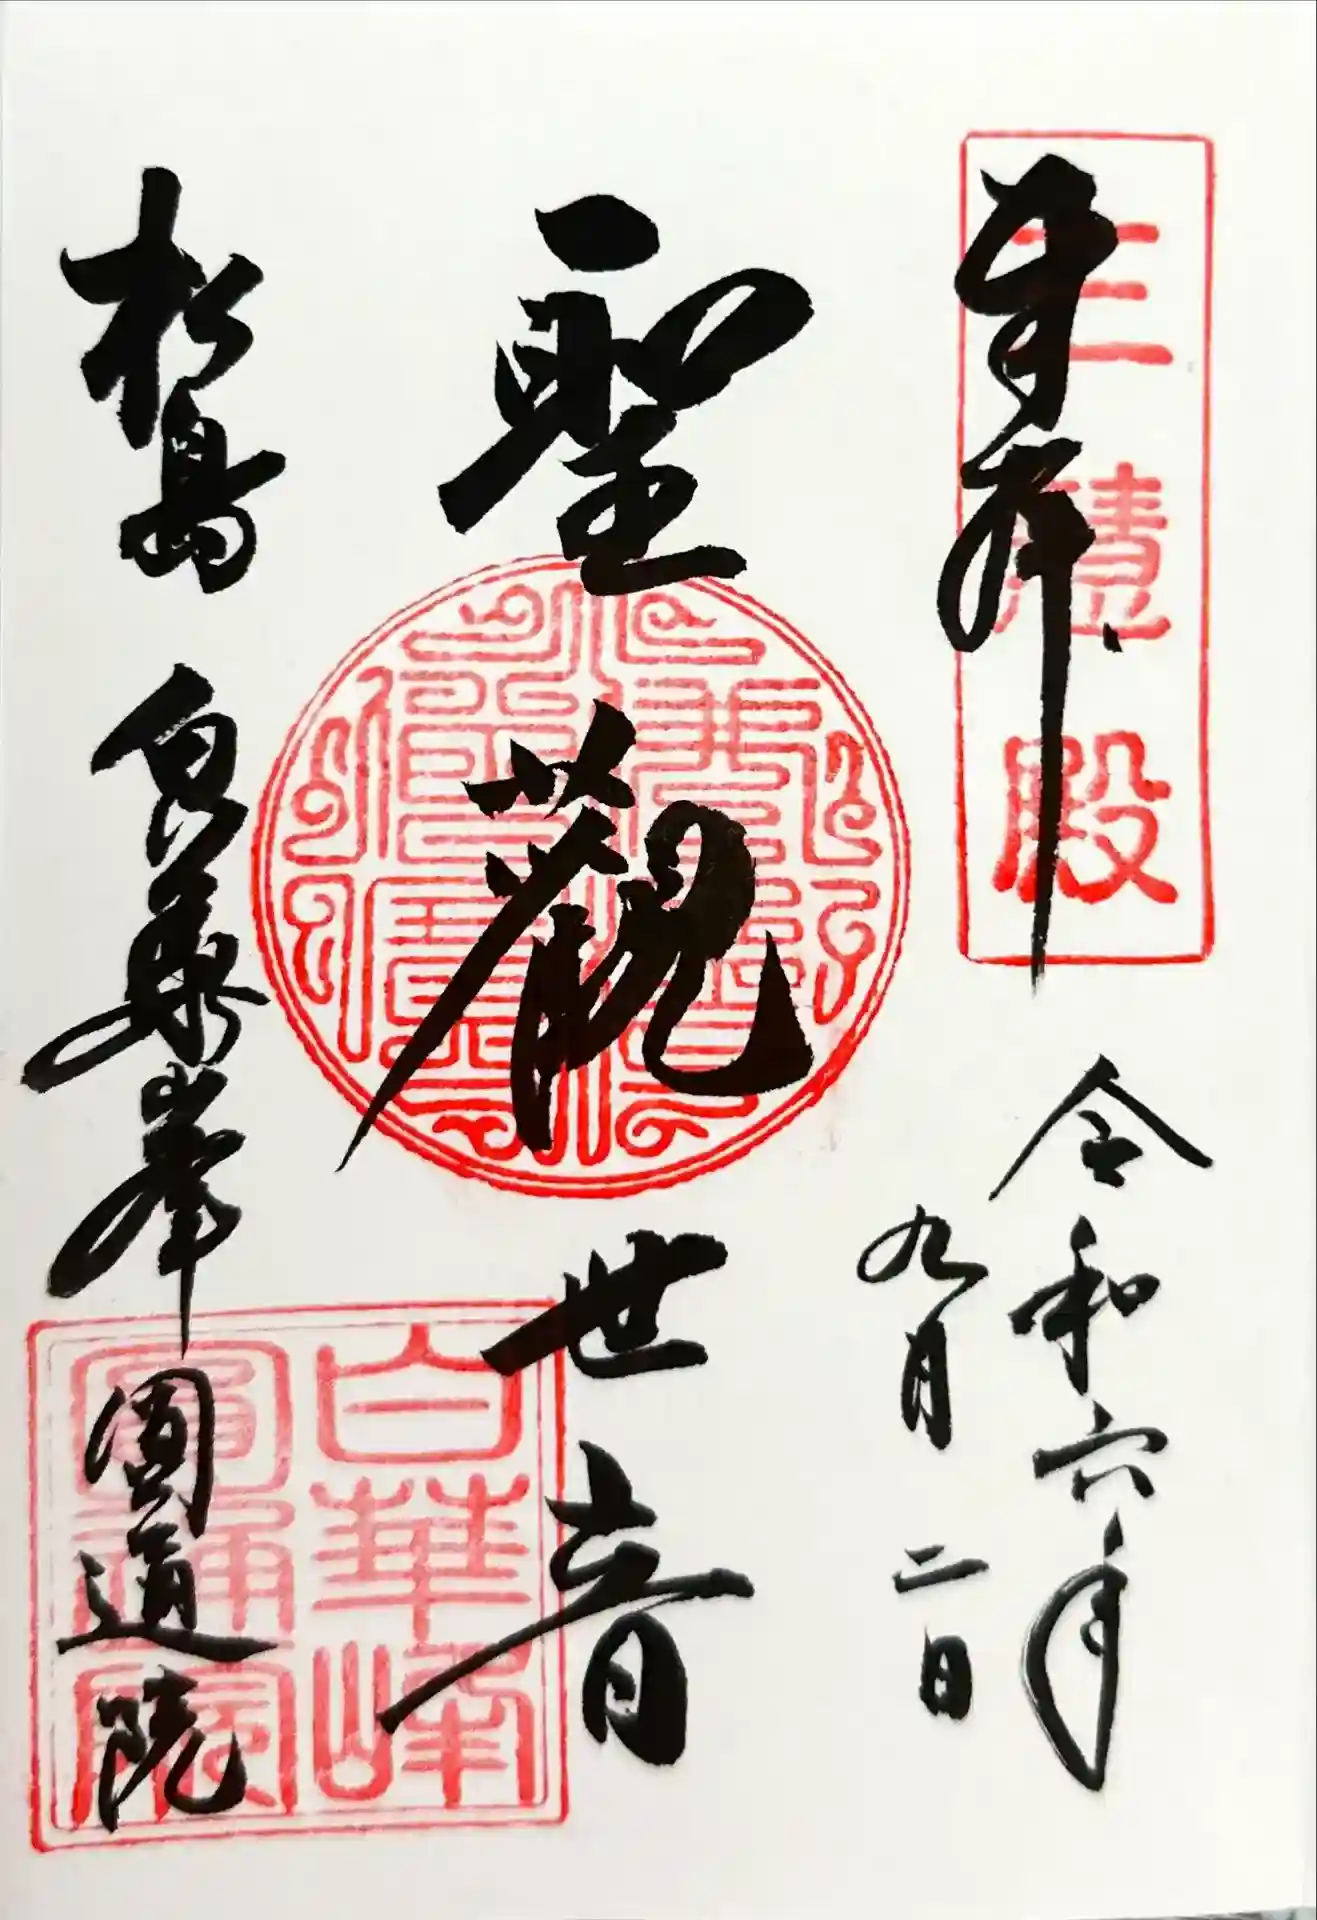 奉拝
三慧殿
令和六年
九月二日
聖觀世音
松島 白華峯 圓通院
白華峰
圓通院